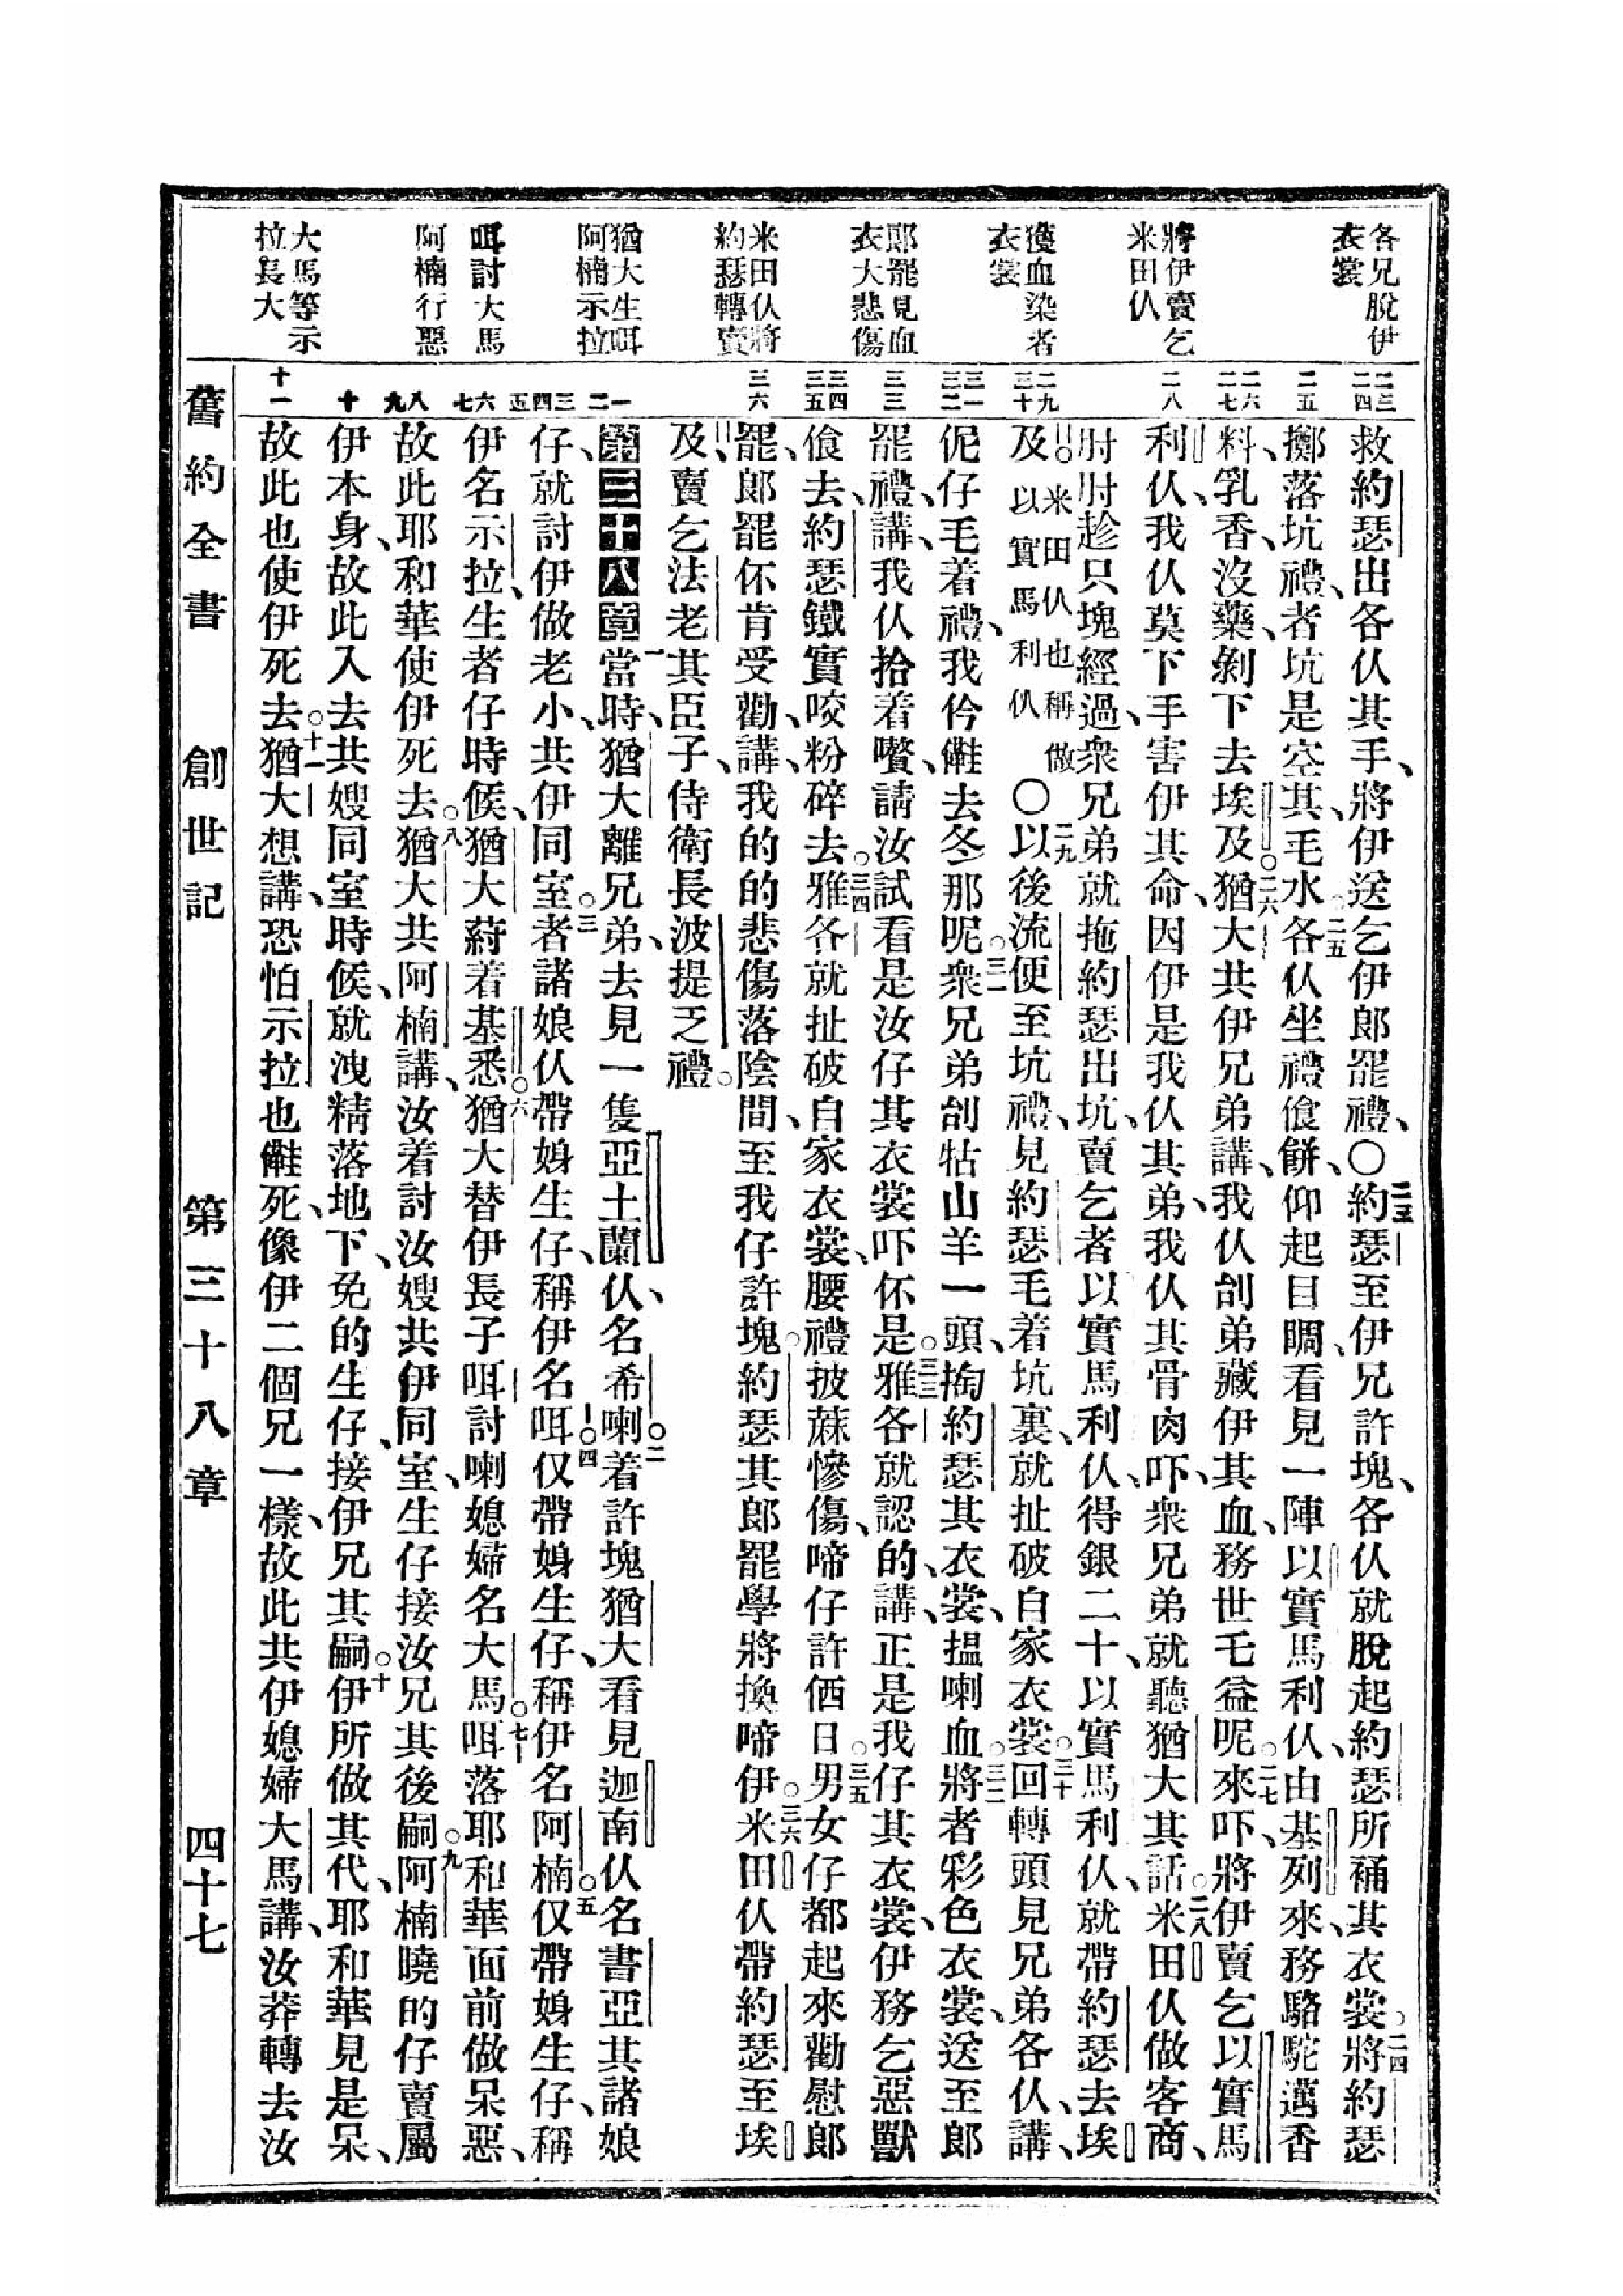 各兄脫伊
衣裳
將伊賣乞
米田仈
獲血染者
衣裳
郎罷見血
衣大悲傷
米田仈將
約瑟轉賣
猶大生咡
阿楠示拉
咡討大馬
阿楠行惡
大馬等示
拉長大
二三
二四
二五
二六
二七
二八
二九
三十
三一
三二
三三
三四
三五
三六
一
二
三
四
五
六
七
八
九
十
十一
救約瑟出各仈其手、將伊送乞伊郎罷禮、〇二三約瑟至伊兄許塊、各仈就脫起約瑟所補其衣裳。二四將約瑟
擲落坑禮、者坑是空其、毛水。二五各仈坐禮飡餅、仰起目睭、看見一陣以實馬利仈、由基列來、務駱駝邁香
料、乳香、沒藥、剝下去埃及。二六猶大共伊兄弟講、我仈刣弟藏伊其血、務世乇益呢。二七來吓、將伊賣乞以實馬
利仈、我仈莫下手害伊其命、因伊是我仈其弟、我仈其骨肉吓、衆兄弟就聽猶大其話。二八米田仈做客商、
肘肘趁只塊經過、衆兄弟就拖約瑟出坑、賣乞者以實馬利仈、得銀二十、以實馬利仈、就帶約瑟去埃
及。米田仈也稱做以實馬利仈〇二九以後流便至坑禮、見約瑟毛着坑裏、就扯破自家衣裳。三十回轉頭見兄弟各仈、講、
伲仔毛着禮、我伶㑚去冬那呢。三一衆兄弟刣牯山羊一頭、掏約瑟其衣裳、搵喇血。三二將者彩色衣裳、送至郎
罷禮、講、我仈拾着嚽、請汝試看是汝仔其衣裳吓伓是。三三雅各就認的、講、正是我仔其衣裳、伊務乞惡獸
飡去、約瑟鐵實咬粉碎去。三四雅各就扯破自家衣裳、腰禮披蔴慘傷、啼仔許㑚日。三五男女仔都起來勸慰郎
罷、郎罷伓肯受勸、講、我的的悲傷落陰間、至我仔許塊。約瑟其郎罷學將換啼伊。三六米田仈帶約瑟至埃
及、賣乞法老其臣子、侍衛長波提乏禮。
第三十八章一當時、猶大離兄弟、去見一隻亞土蘭仈、名希喇。二着許塊猶大看見迦南仈名書亞其諸娘
仔、就討伊做老小、共伊同室。三者諸娘仈帶娠生仔、稱伊名咡。四仅帶娠生仔、稱伊名阿楠。五仅帶娠生仔、稱
伊名示拉、生者仔時候、猶大蒔着基悉。六猶大替伊長子咡討喇媳婦名大馬。七咡落耶和華面前做呆惡、
故此耶和華使伊死去。八猶大共阿楠講、汝着討汝嫂共伊同室、生仔接汝兄其後嗣。九阿楠曉的仔賣屬
伊本身、故此入去共嫂同室時候、就洩精落地下、免的生仔、接伊兄其嗣。十伊所做其代、耶和華見是呆、
故此也使伊死去。十一猶大想講、恐怕示拉也㑚死、像伊二個兄一樣、故此共伊媳婦大馬講、汝莽轉去汝
舊約全書　創世記　第三十八章　四十七